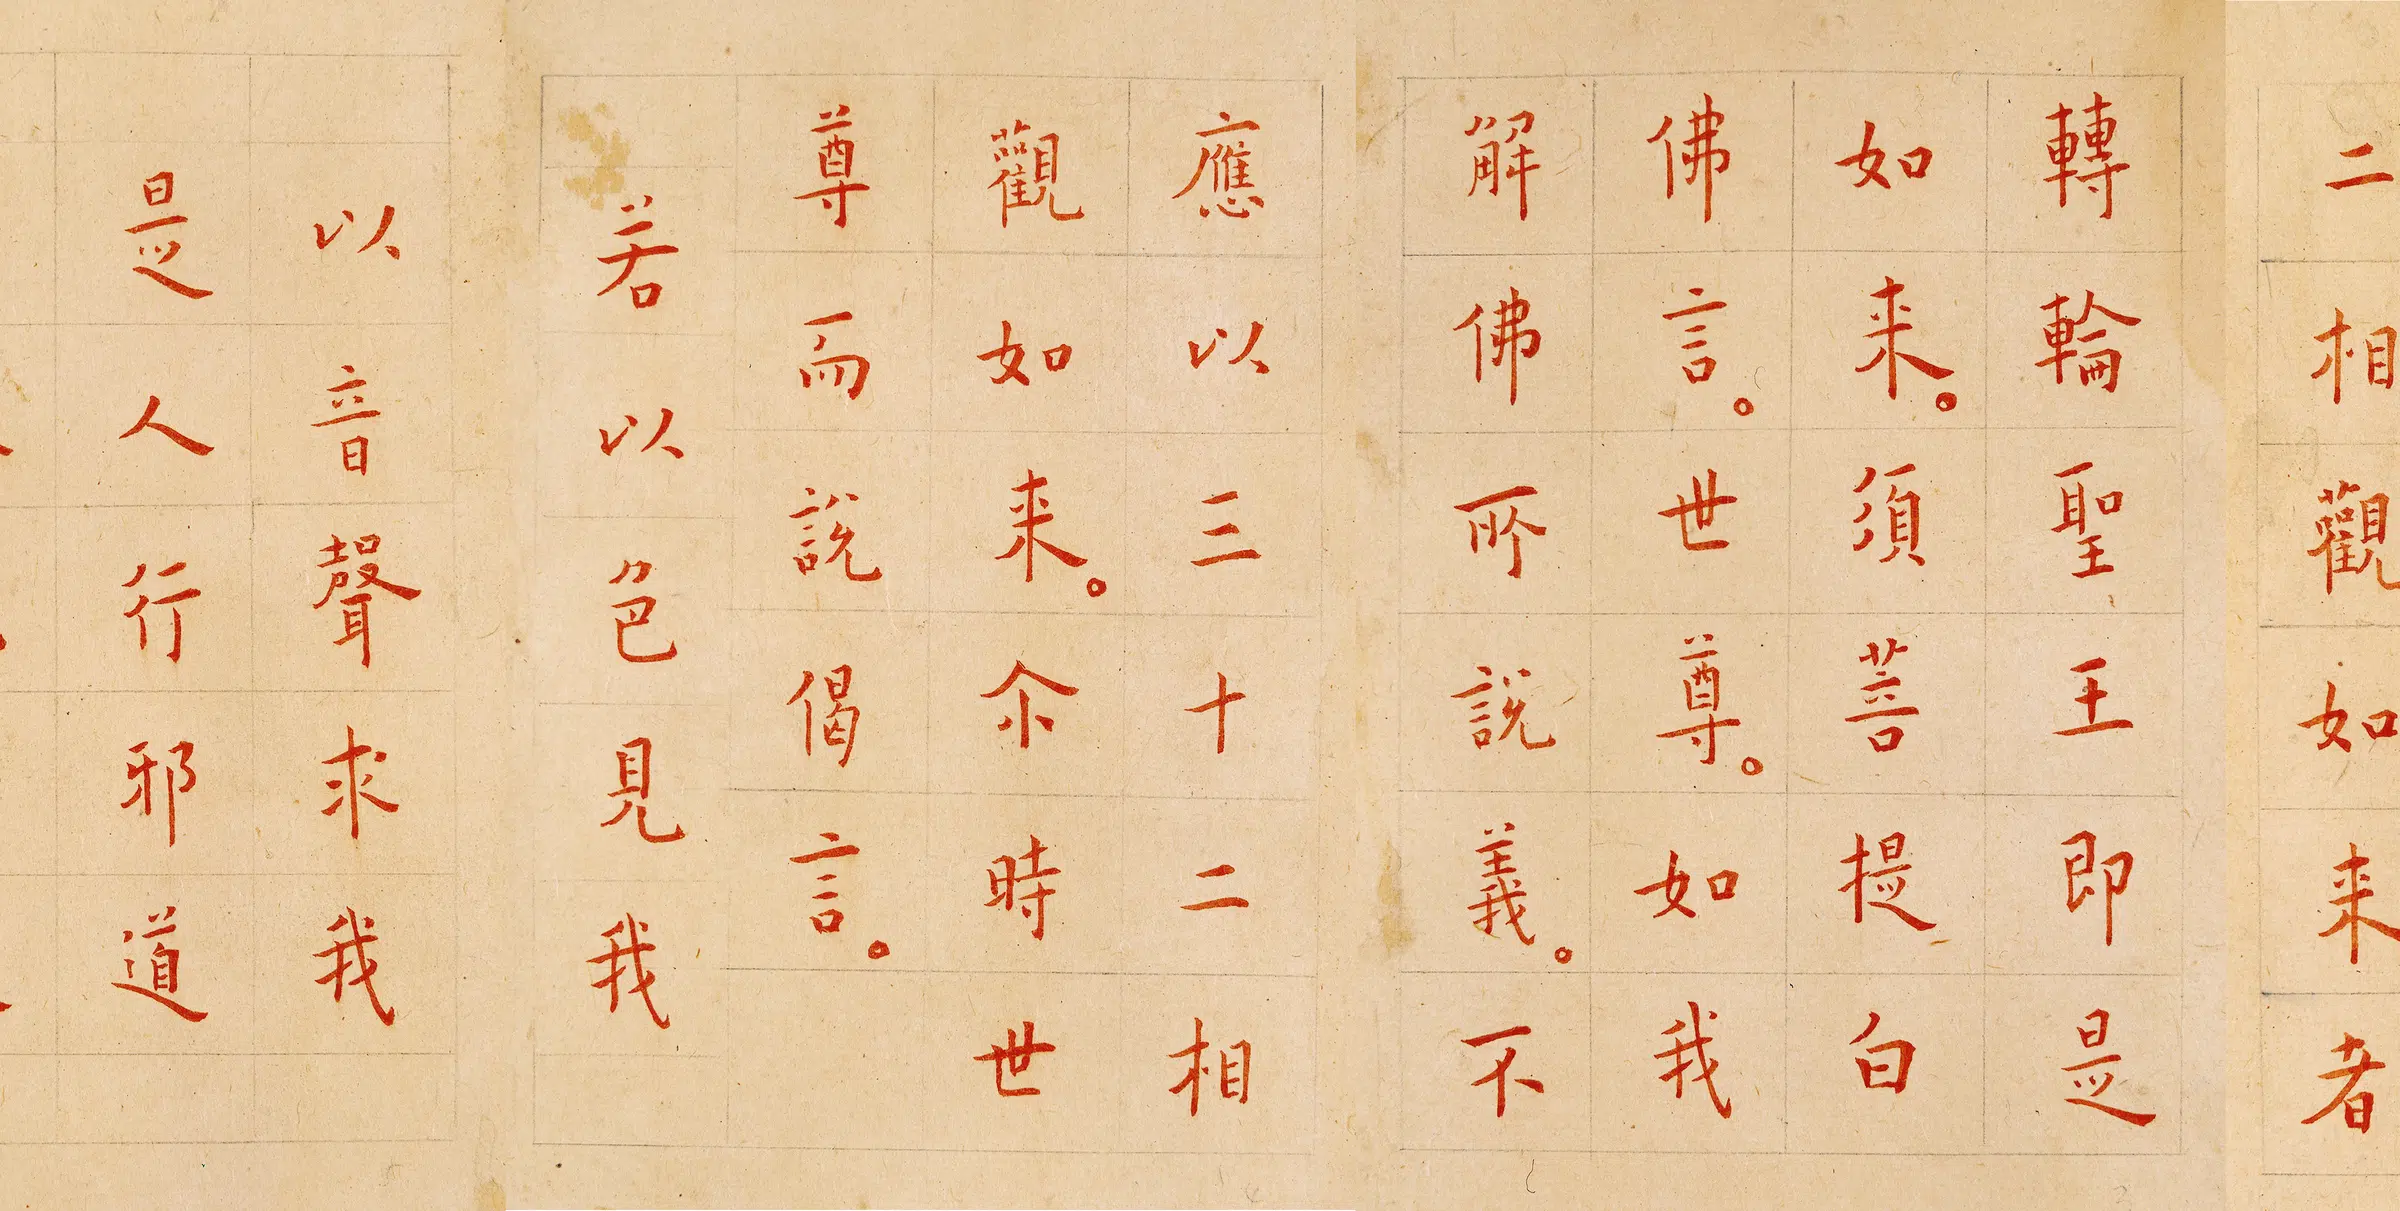 二相觀如来者
轉輪聖王即是
如来。須菩提白
佛言。世尊。如我
解佛所說義。不
應以三十二相
觀如来。尒時世
尊而說偈言。
若以色見我
以音聲求我
是人行邪道